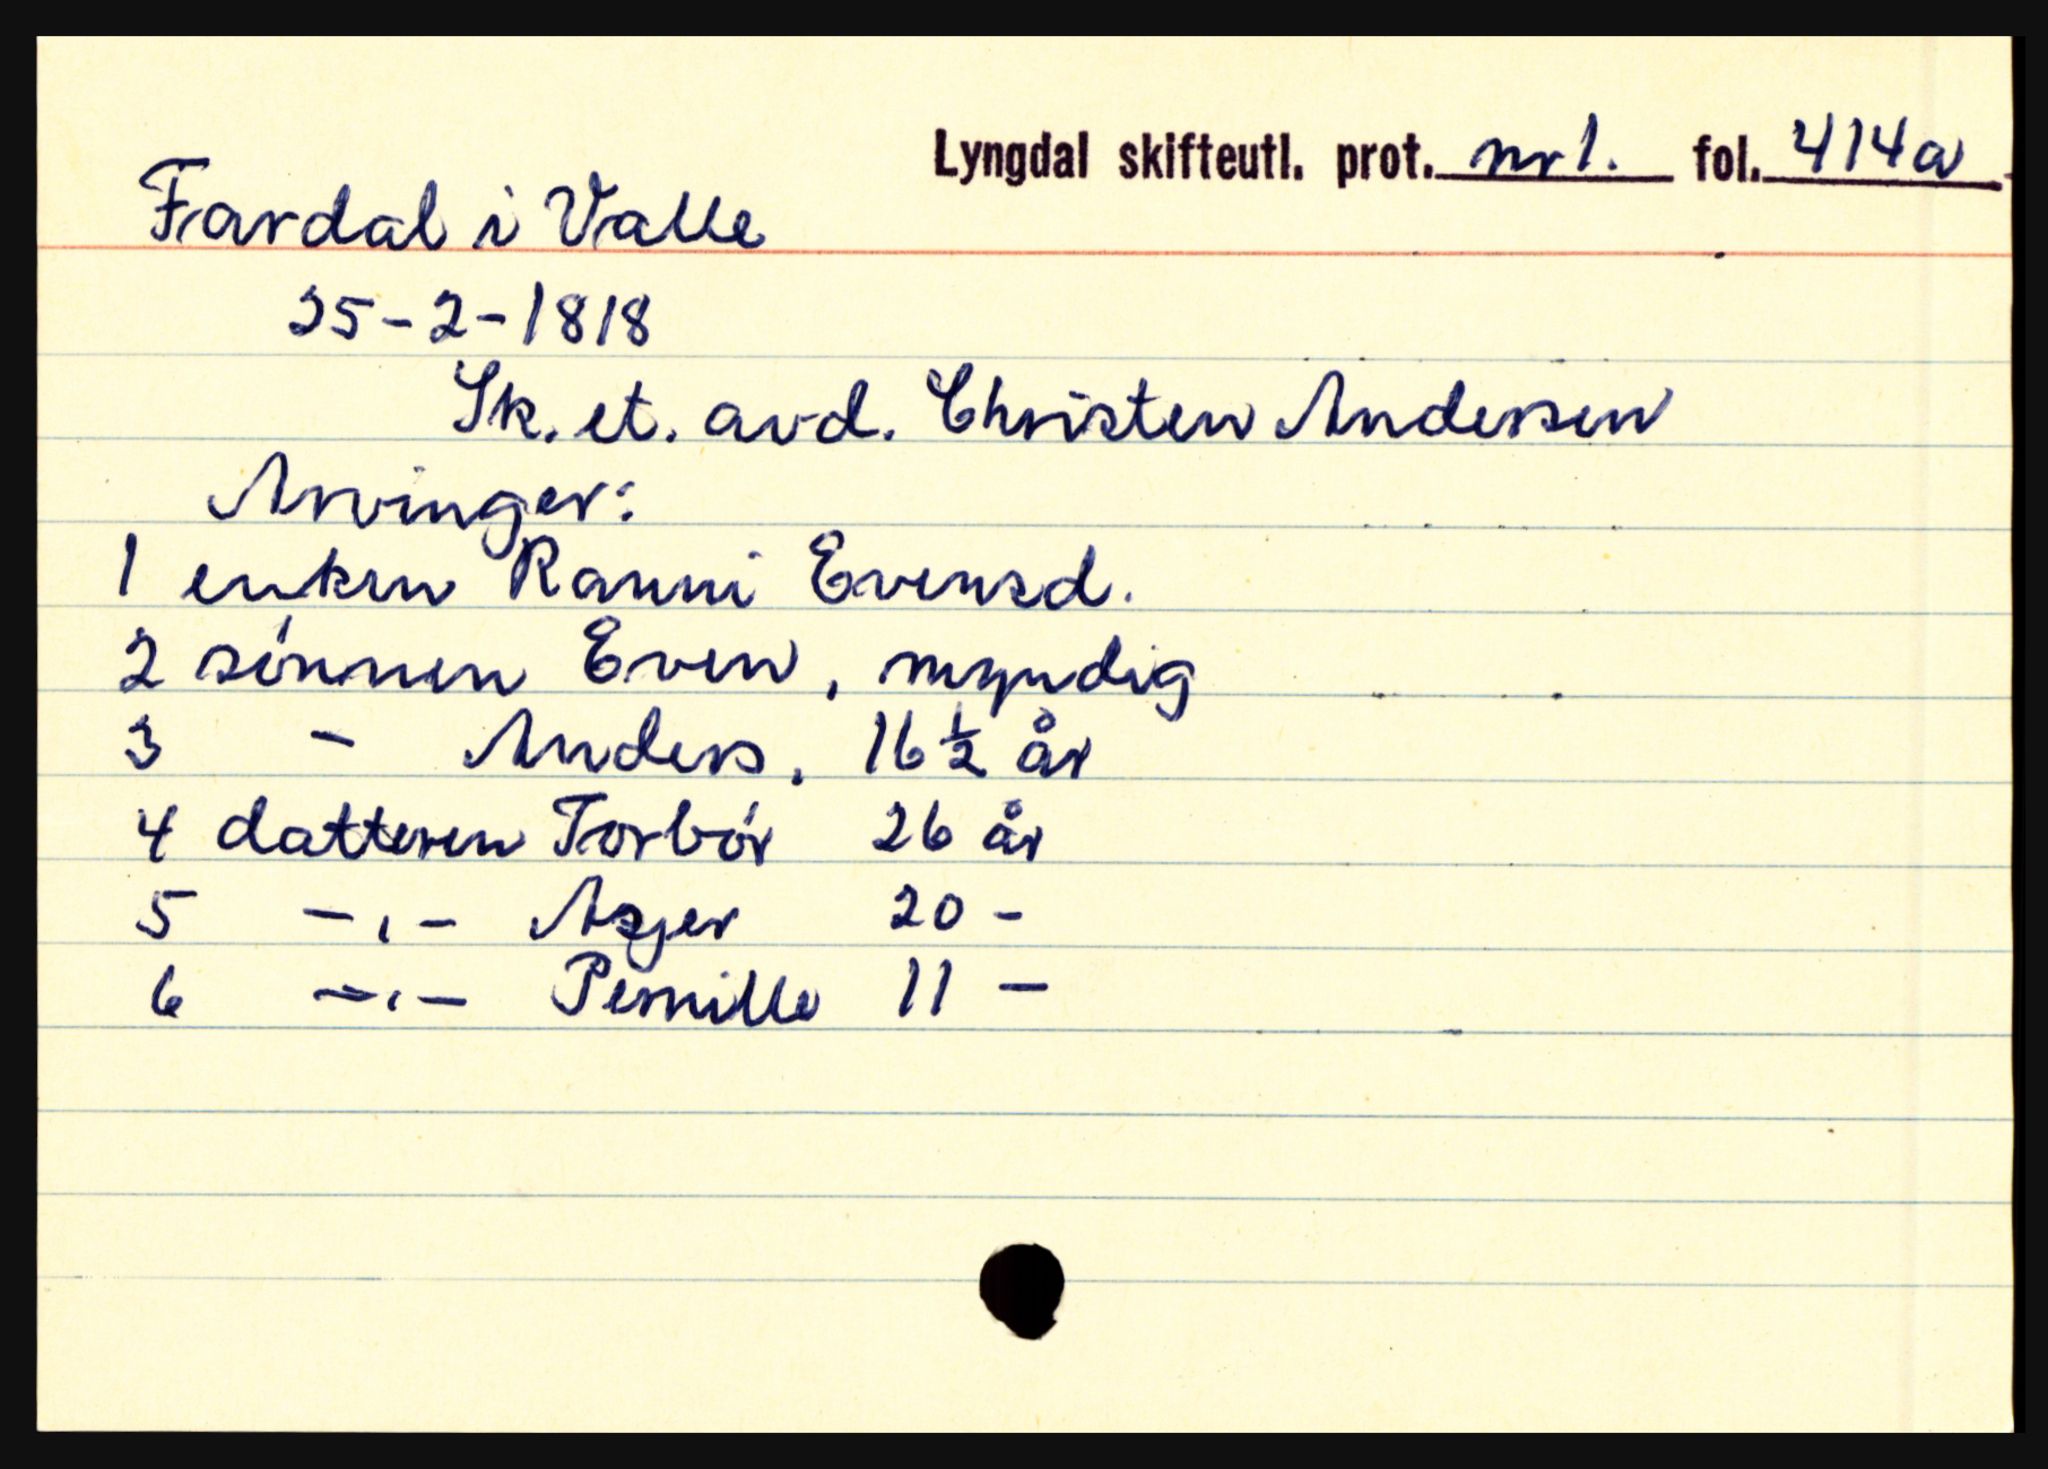 Lyngdal skifteutl. prot. nr 1. fol. 414a
Fardal i Valle
25-2-1818
Sk. et. avd. Christen Andersen
Arvinger:
1 enken Ranni Evensd.
2 sónnen Even, myndig
3 - Anders, 16 ½ år
4 datteren Torbór 26 år
5 -,- Asjer 20 -
6 -,- Pernille 11 -